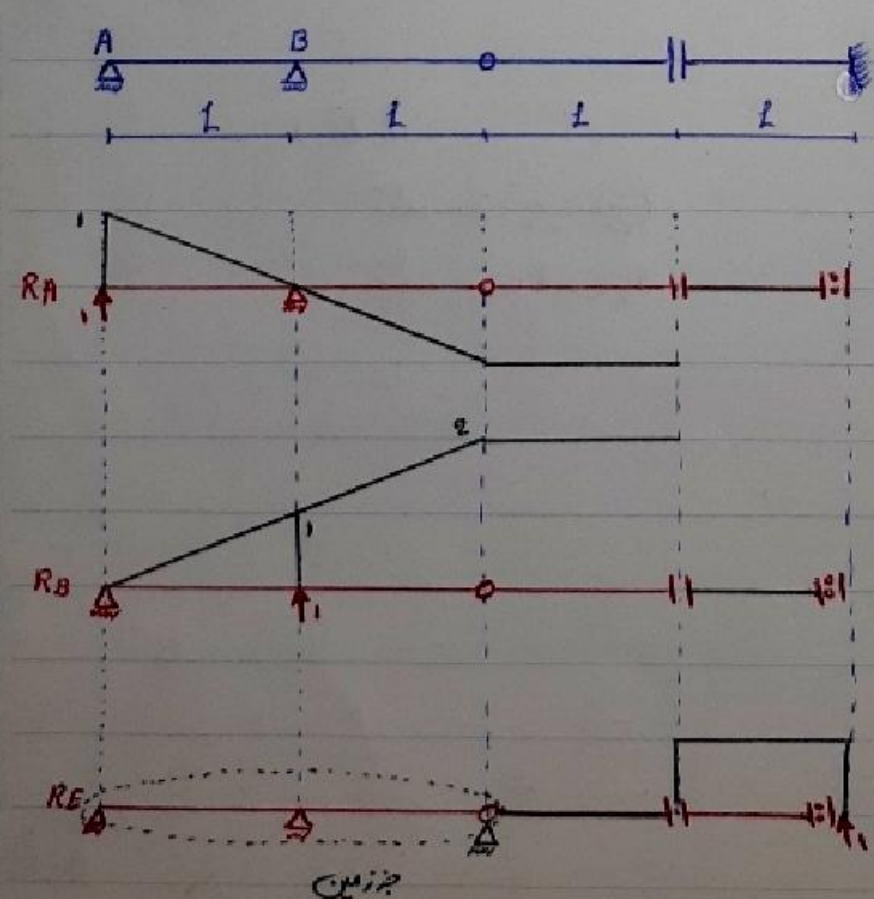 A B
L L L L
1
RA
1
2
1
RB
1
RE
1
جزء زمین